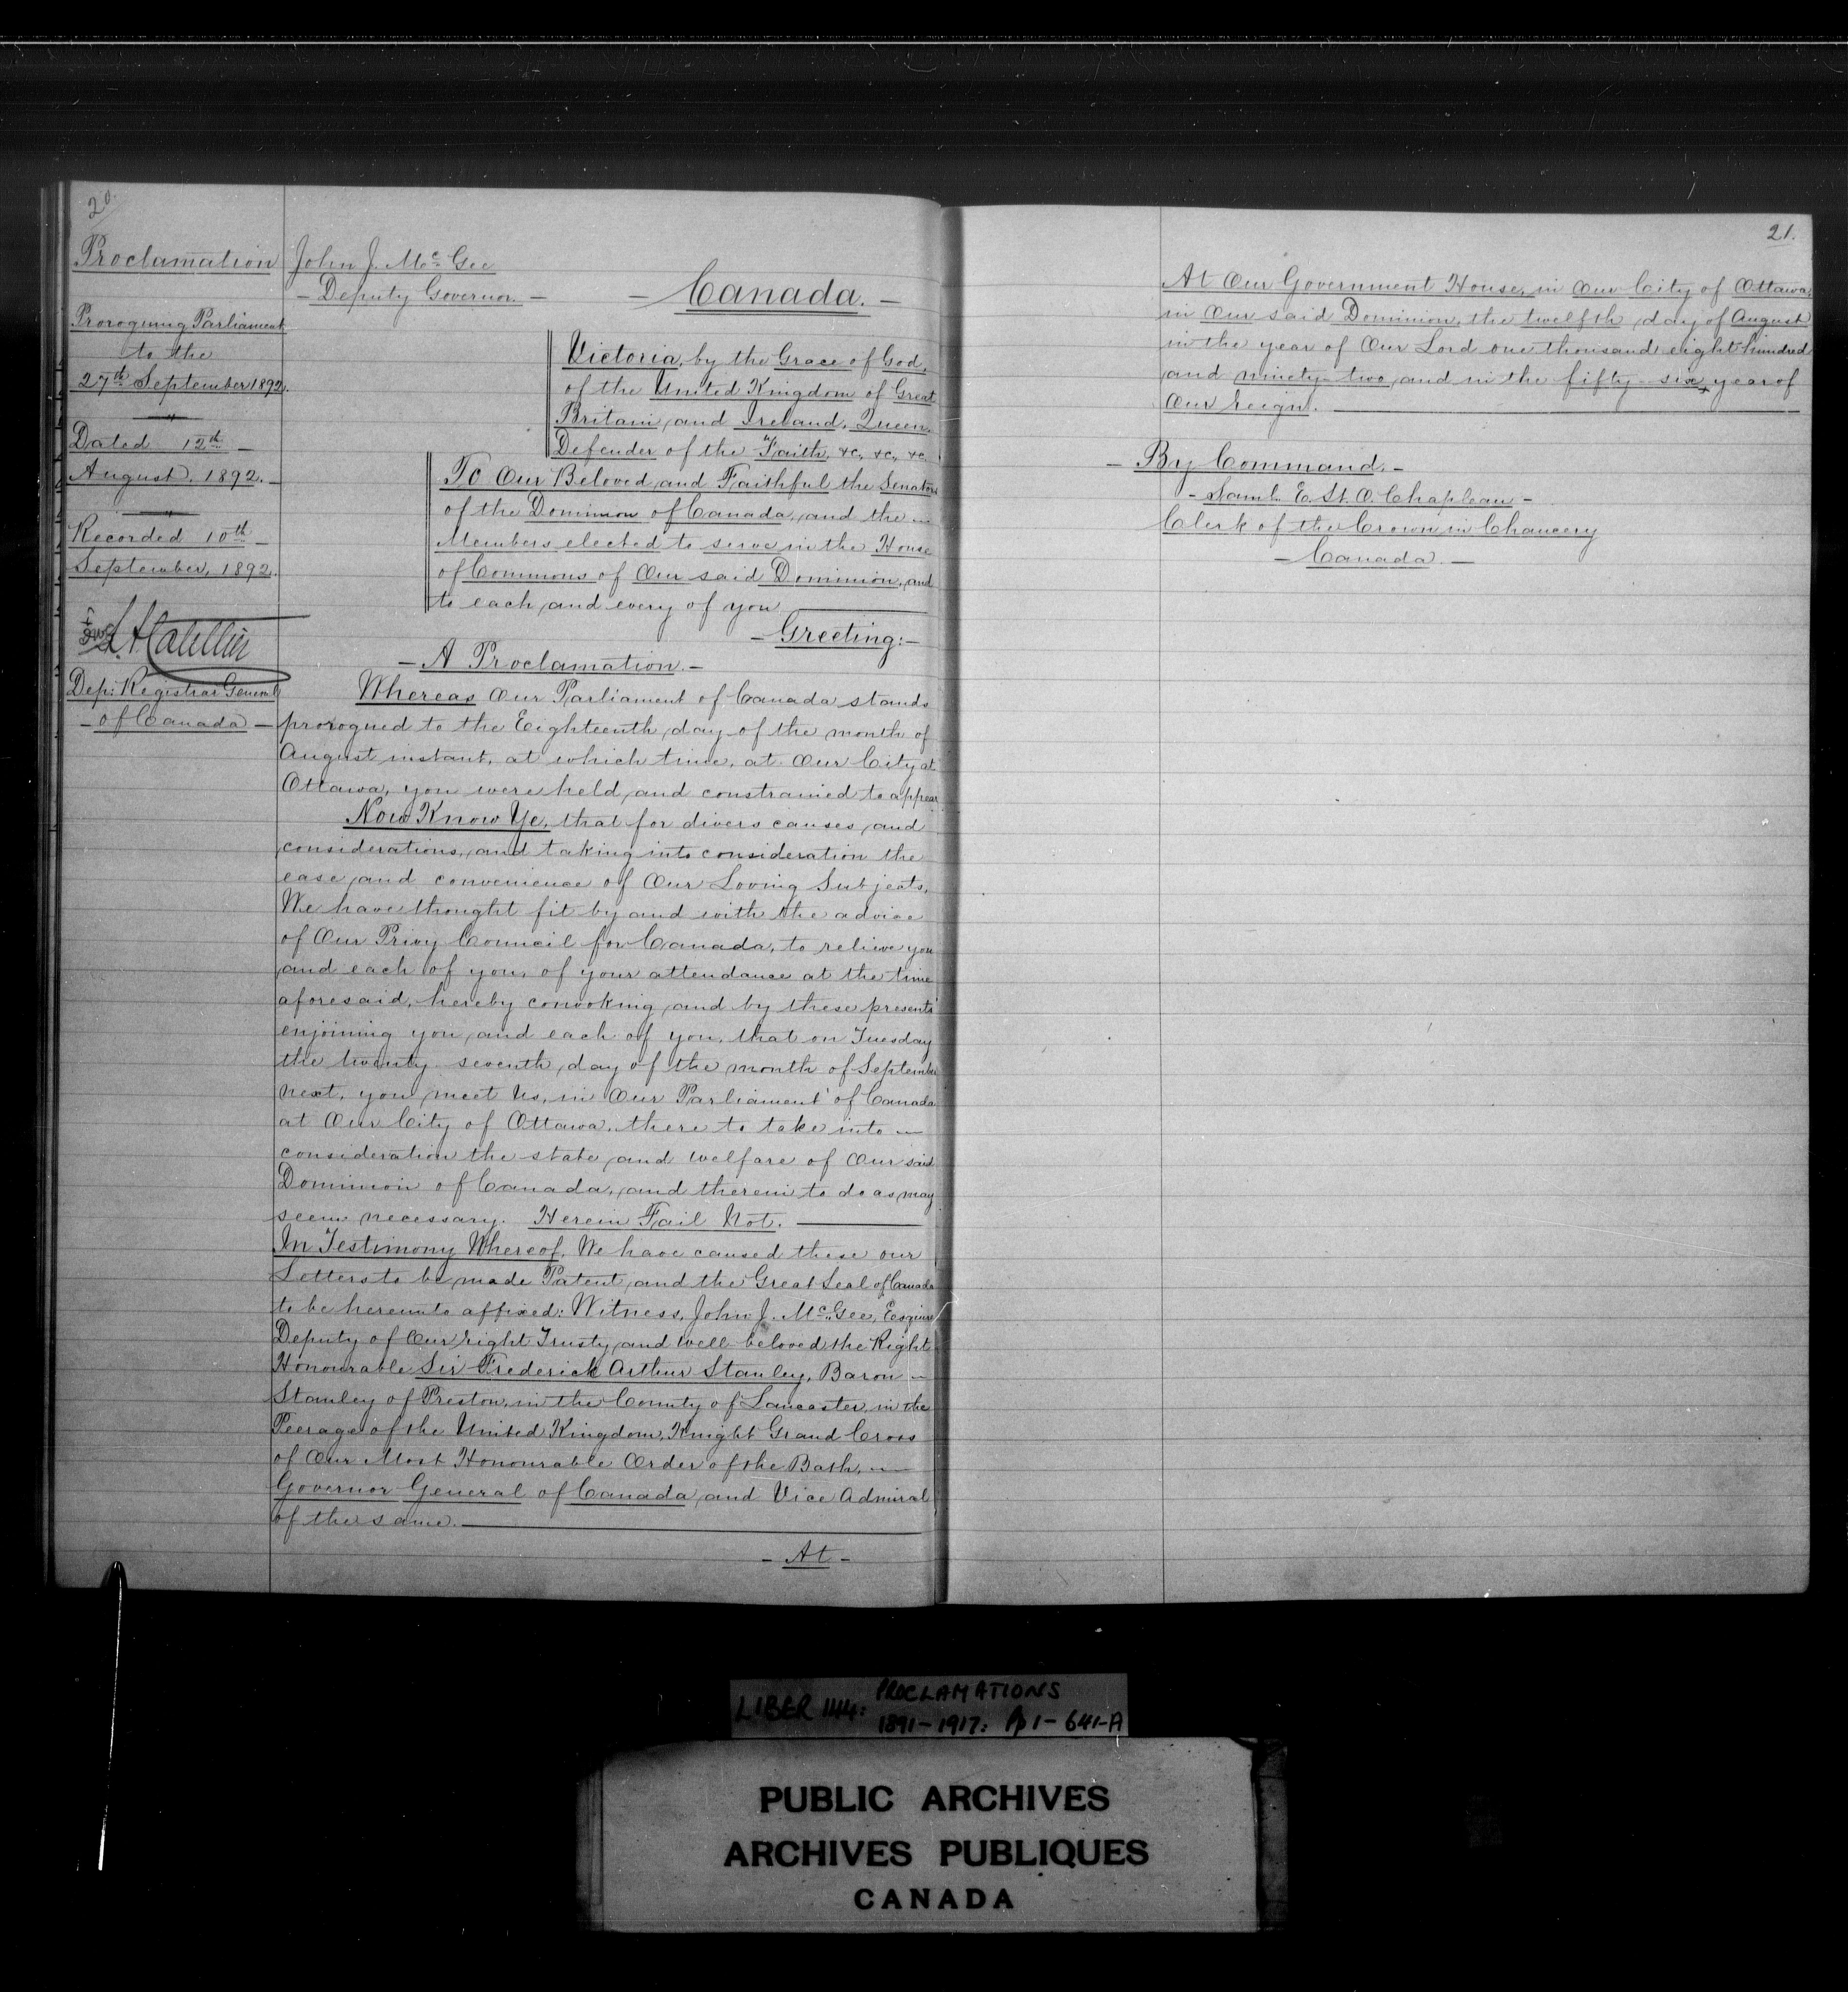 20.
Proclamation
Proroguing Parliament
to the
27th September 1892.
Dated 12th
August, 1892.
Recorded 10th
September, 1892.
L. A. Catellier
Dep: Registrar General
- of Canada -
John J. McGee
- Deputy Governor. -
- Canada. -
Victoria, by the Grace of God,
of the United Kingdom of Great
Britain and Ireland, Queen.
Defender of the Faith, &c, &c, &c.
To Our Beloved and Faithful the Senators
of the Dominion of Canada, and the
Members elected to serve in the House
of Commons of Our said Dominion, and
to each and every of you
- Greeting: -
- A Proclamation. -
Whereas Our Parliament of Canada stands
prorogued to the Eighteenth day of the month of
August instant, at which time, at Our City at
Ottawa, you were held and constrained to appear
Now Know Ye, that for divers causes and
considerations, and taking into consideration the
ease and convenience of Our Loving Subjects,
We have thought fit by and with the advice
of Our Privy Council for Canada, to relieve you
and each of you, of your attendance at the time
aforesaid, hereby convoking and by these presents
enjoining you and each of you, that on Tuesday
the twenty seventh day of the month of September
next, you meet Us, in Our Parliament of Canada
at Our City of Ottawa, there to take into
consideration the state and welfare of Our said
Dominion of Canada, and therein to do as may
seem necessary. Herein Fail Not.
In Testimony Whereof, We have caused these our
Letters to be made Patent and the Great Seal of Canada
to be hereunto affixed: Witness, John J. McGee, Esquire
Deputy of Our right Trusty and well-beloved the Right
Honourable Sir Frederick Arthur Stanley, Baron
Stanley of Preston, in the County of Lancaster, in the
Peerage of the United Kingdom, Knight Grand Cross
of Our Most Honourable Order of the Bath,
Governor General of Canada and Vice Admiral
of the same.
- At -
21.
At Our Government House, in Our City of Ottawa,
in Our said Dominion, the twelfth day of August
in the year of Our Lord one thousand eight hundred
and ninety-two and in the fifty-six year of
Our reign.
- By Command. -
- Saml. E. St. O. Chapleau -
Clerk of the Crown in Chancery
- Canada. -
LIBER 144: PROCLAMATIONS
1891-1917: Pp 1-641-A
PUBLIC ARCHIVES
ARCHIVES PUBLIQUES
CANADA